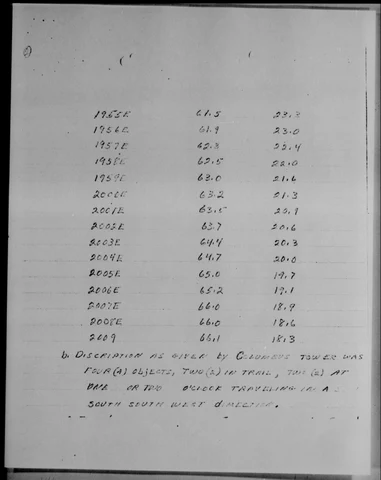 1955E 61.5 23.3
1956E 61.9 23.0
1957E 62.3 22.4
1958E 62.5 22.0
1959E 63.0 21.6
2000E 63.2 21.3
2001E 63.5 20.9
2002E 63.7 20.6
2003E 64.4 20.3
2004E 64.7 20.0
2005E 65.0 19.7
2006E 65.2 19.1
2007E 66.0 18.9
2008E 66.0 18.6
2009 66.1 18.3
b. DISCRIPTION AS GIVEN by TOWER WAS
FOUR (4) OBJECTS, TWO (2) IN TRAIL, TWO (2) AT
ONE OR TWO O'CLOCK TRAVELING IN A
SOUTH SOUTH WEST dIRECTION.